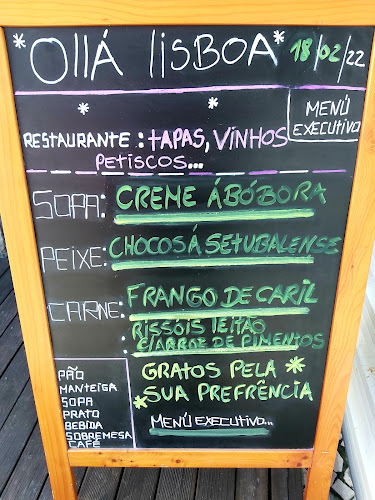 *Ollá lisboa* 18/02/22
MENÚ
EXECUTIVO
RESTAURANTE: tAPAS, VINHOS
PETISCOS...
SOPA: CREME ÁBÓBORA
PEIXE: CHOCOS Á SETUBALENSE
CARNE: FRANGO DE CARIL
: RISSÓIS LEITÃO
C/ARROZ DE PIMENTOS
PÃO
MANTEIGA
SOPA
PRATO
BEBIDA
SOBREMESA
CAFÉ
GRATOS PELA *
* SUA PREFRÊNCIA
MENÚ EXECUTIVO...